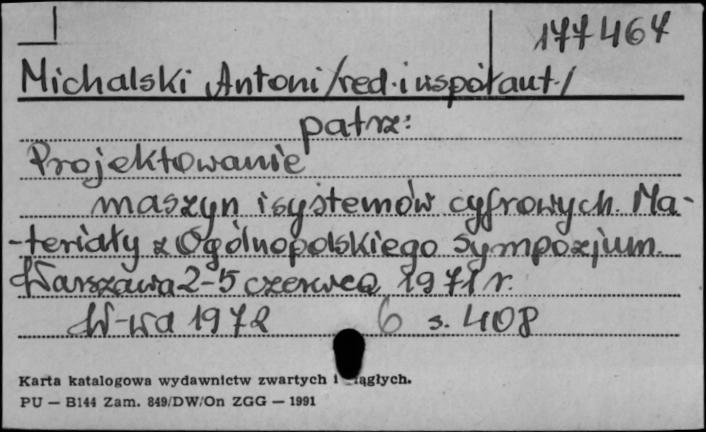 177467
Michalski Antoni /red. i współaut./
patrz:
Projektowanie
maszyn i systemów cyfrowych. Ma-
-teriały z Ogólnopolskiego Sympozjum.
Warszawa 2-5 czerwca 1971 r.
W-wa 1972 6 s. 408
Karta katalogowa wydawnictw zwartych i iągłych.
PU — B144 Zam. 849/DW/On ZGG — 1991